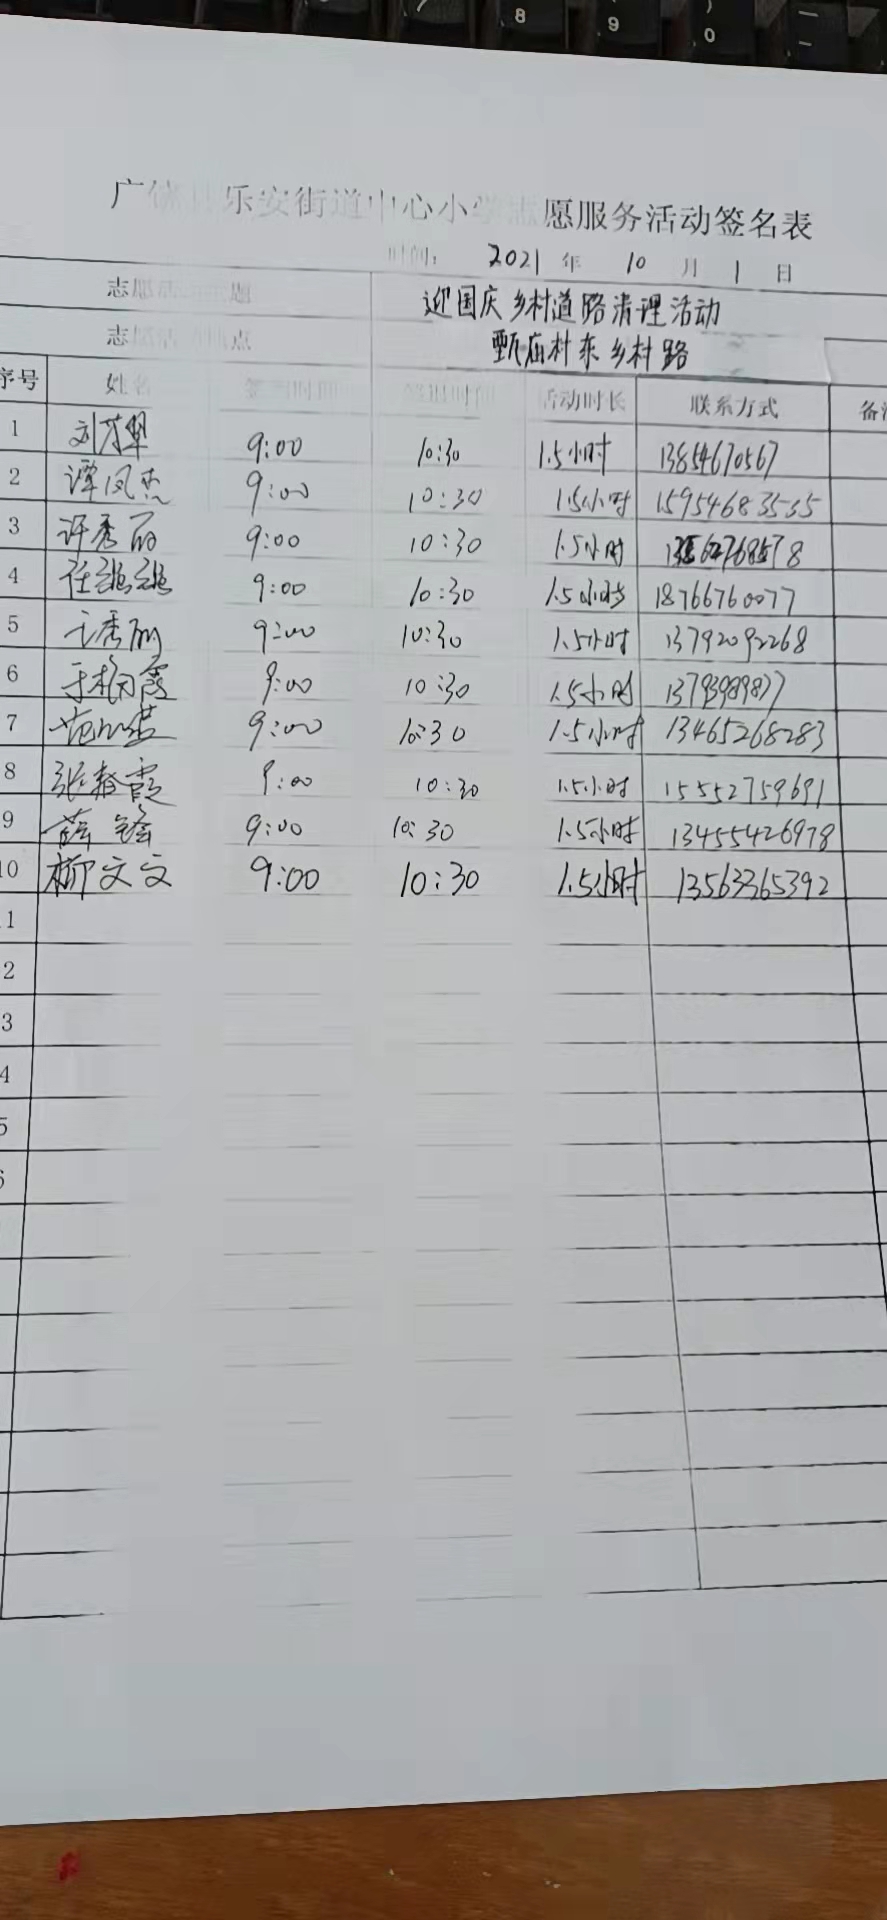 8 9 0
广饶县乐安街道中心小学志愿服务活动签名表
时间： 2021 年 10 月 1 日
志愿活动主题 迎国庆乡村道路清理活动
志愿活动地点 甄庙村东乡村路
序号 姓名 签到时间 签退时间 活动时长 联系方式 备注
1 9:00 10:30 1.5小时 13854670567
2 谭凤杰 9:00 10:30 1.5小时 15954683535
3 许秀丽 9:00 10:30 1.5小时
4 任 9:00 10:30 1.5小时 18766760077
5 秀丽 9:00 10:30 1.5小时 13792092268
6 于 霞 9:00 10:30 1.5小时 13793989877
7 9:00 10:30 1.5小时 13465268283
8 张春霞 9:00 10:30 1.5小时 15552759691
9 薛 9:00 10:30 1.5小时 13455426978
10 柳文文 9:00 10:30 1.5小时 13563365392
1
2
3
4
5